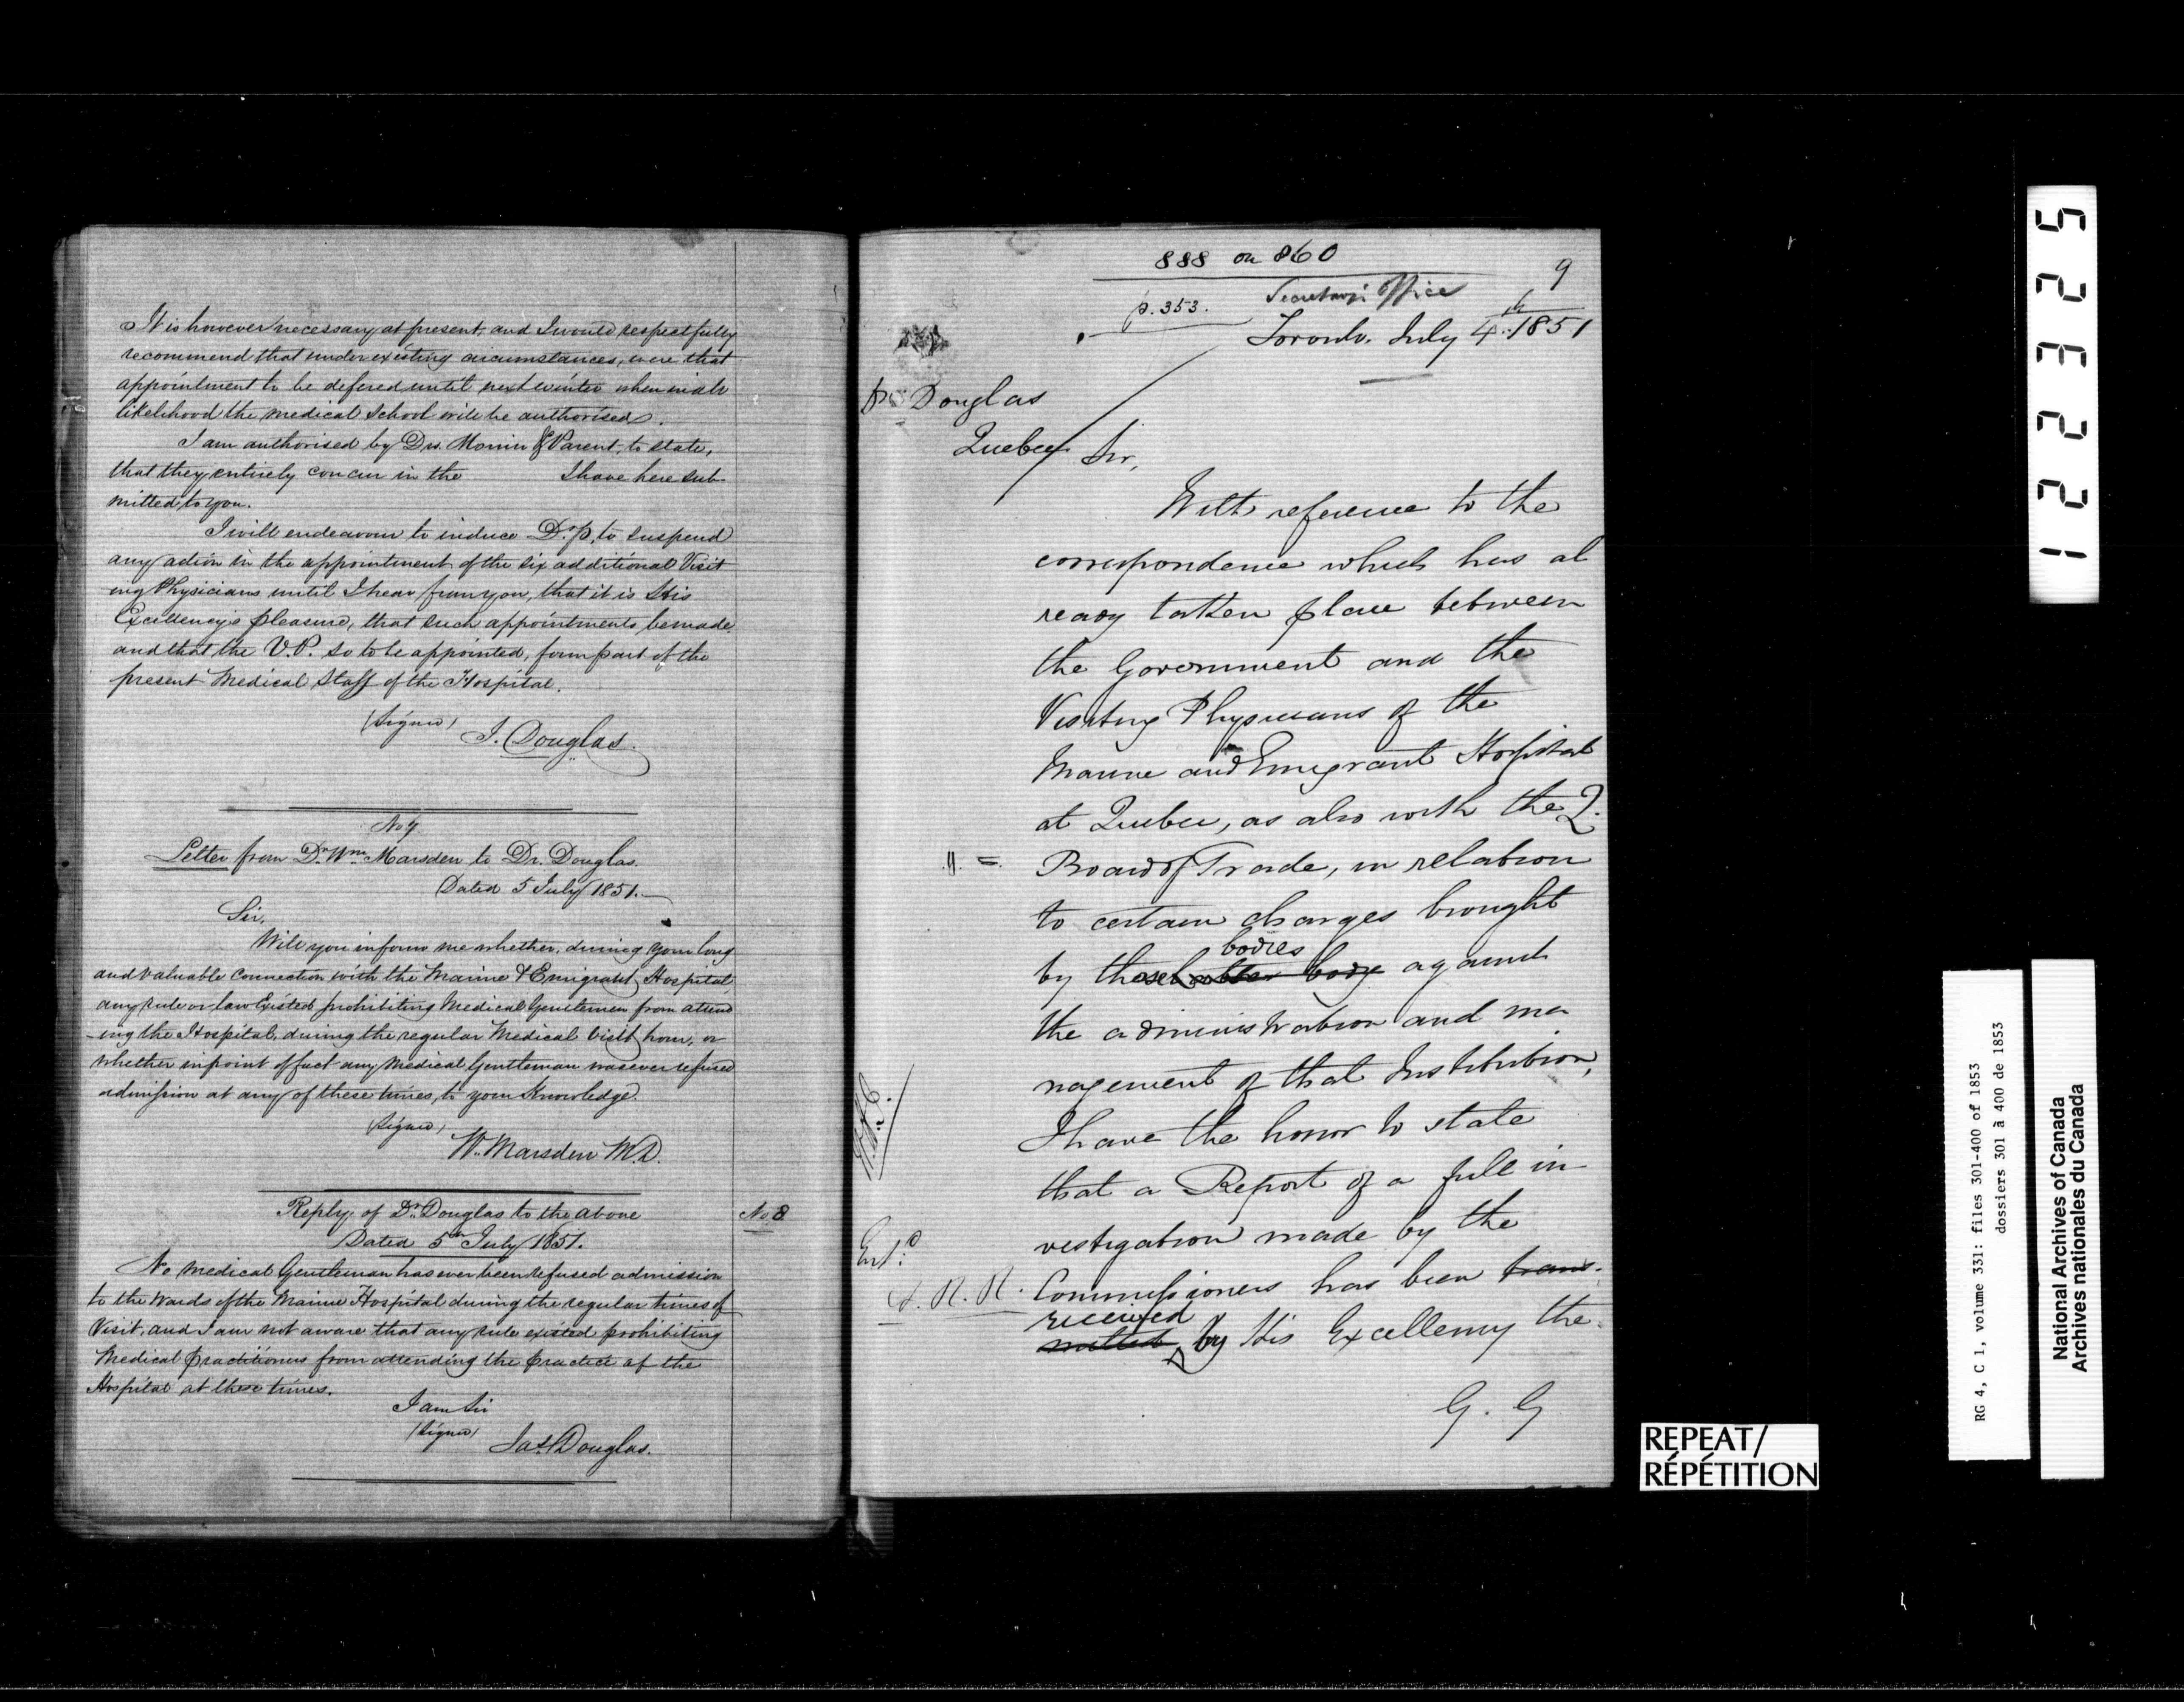 It is however necessary at present, and I would respectfully
recommend that under existing circumstances, were that
appointment to be defered until next winter when in all
likelihood the medical School will be authorised.
I am authorised by Drs. Morrin & Parent, to state,
that they entirely concur in the I have here sub-
mitted to you.
I will endeavour to induce Dr. P. to suspend
any action in the appointment of the six additional Visit
ing Physicians until I hear from you, that it is His
Excellency's pleasure, that such appointments be made
and that the V.P. so to be appointed, form part of the
present Medical Staff of the Hospital.
(Signed)
J. Douglas.
No 7.
Letter from Dr. Wm. Marsden to Dr. Douglas.
Dated 5 July 1851.
Sir,
Will you inform me whether, during your long
and valuable connection with the Marine & Emigrant Hospital,
any rule or law existed prohibiting Medical Gentlemen from attend
-ing the Hospital, during the regular Medical visit hour, or
whether in point of fact any Medical Gentleman was ever refused
admission at any of these times, to your Knowledge.
(Signed)
W. Marsden M.D.
Reply of Dr. Douglas to the above
No 8
Dated 5th July 1851.
No Medical Gentleman has ever been refused admission
to the Wards of the Marine Hospital during the regular times of
Visit, and I am not aware that any rule existed prohibiting
Medical practitioners from attending the practice of the
Hospital at these times.
I am Sir
(Signed)
Jas. Douglas.
888 on 860
9
p. 353.
Secretary's Office
Toronto. July 4th 1851
Dr Douglas
Quebec
Sir,
With reference to the
correspondence which has al
ready taken place between
the Government and the
Visiting Physicians of the
Marine and Emigrant Hospital
at Quebec, as also with the Q.
Board of Trade, in relation
to certain charges brought
bodies
by those latter body against
the administration and ma
nagement of that Institution,
I have the honor to state
that a Report of a full in
vestigation made by the
Entd
J. R. R.
Commissioners has been trans-
received
mitted by His Excellency the
G. G
REPEAT/
RÉPÉTITION
12235
RG 4, C 1, volume 331: files 301-400 of 1853
dossiers 301 à 400 de 1853
National Archives of Canada
Archives nationales du Canada